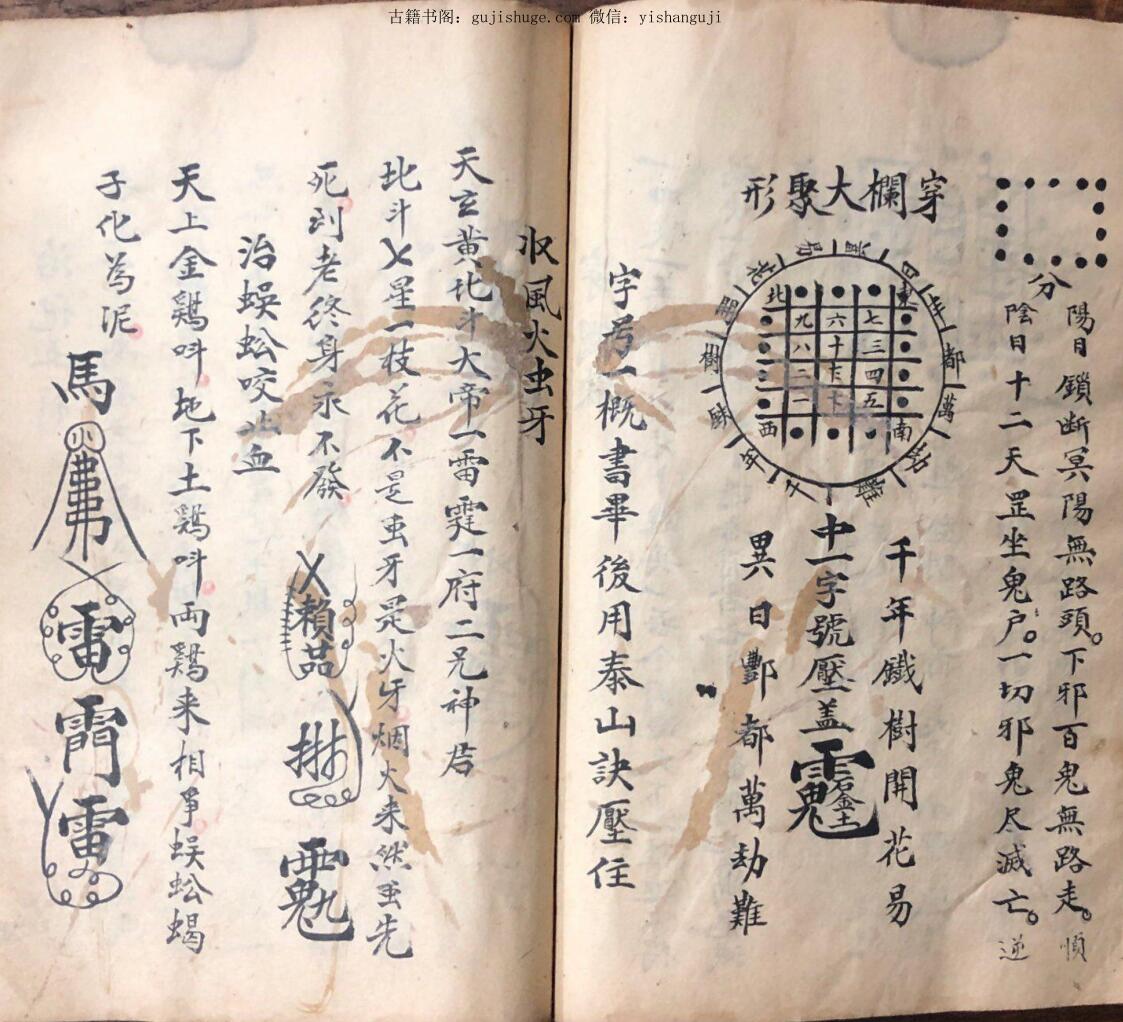 古籍书阁：gujishuge.com 微信：yishanguji
分
陽日鎖断冥陽無路頭。下邪百鬼無路走。順
陰日十二天罡坐鬼户。一切邪鬼尽滅亡。逆
穿欄大聚形
千年鐵樹開花易
萬都
樹開花
北 東
九 六 七
八 十 三
二 四
一 五
西 南
中一字號壓盖
異日酆都萬劫難
字号一概書畢後用泰山訣壓住
収風火虫牙
天玄黄北斗大帝一雷霆一府二兄神君
北斗七星一枝花不是虫牙是火牙烟火来然虫先
死到老终身永不發
治蜈蚣咬止血
天上金鷄呌地下土鷄呌両鷄来相争蜈蚣蝎
子化為泥
馬
雷
雷